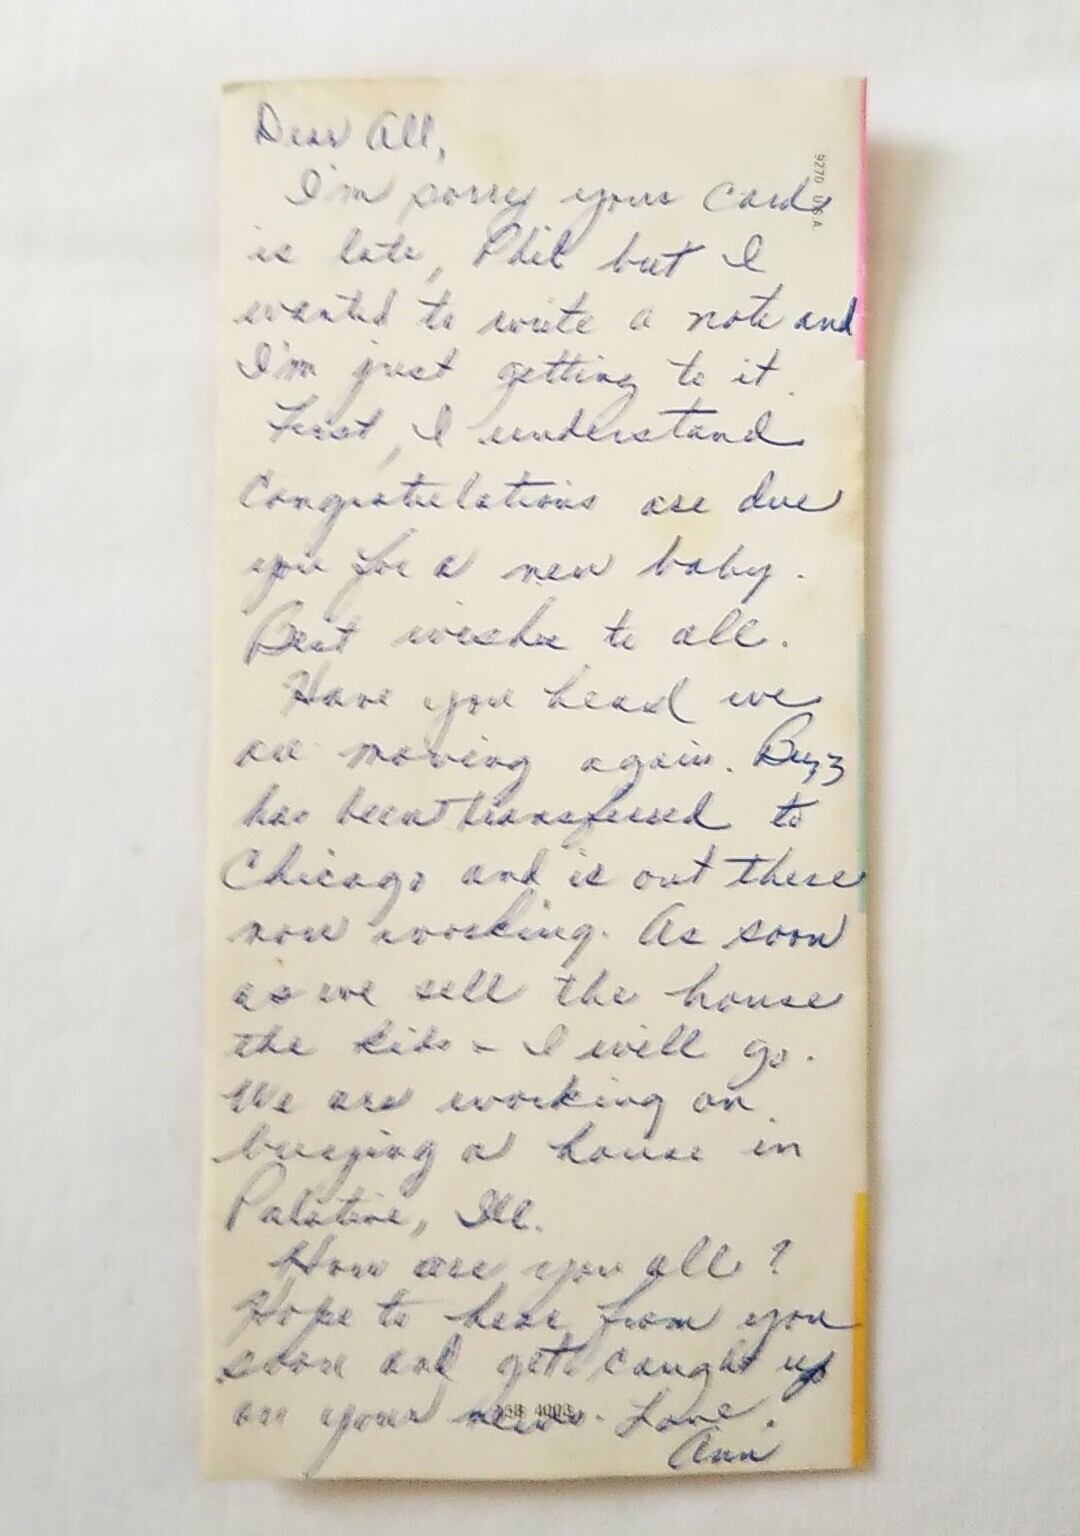 Dear All,
9270 USA
I'm sorry your card
is late, Phil but I
wanted to write a note and
I'm just getting to it.
First, I understand
Congratulations are due
you for a new baby.
Best wishes to all.
Have you heard we
are moving again. Buzz
has been transferred to
Chicago and is out there
now working. As soon
as we sell the house
the kids & I will go.
We are working on
buying a house in
Palatine, Ill.
How are you all?
Hope to hear from you
soon and get caught up
on your news. Love,
Ann